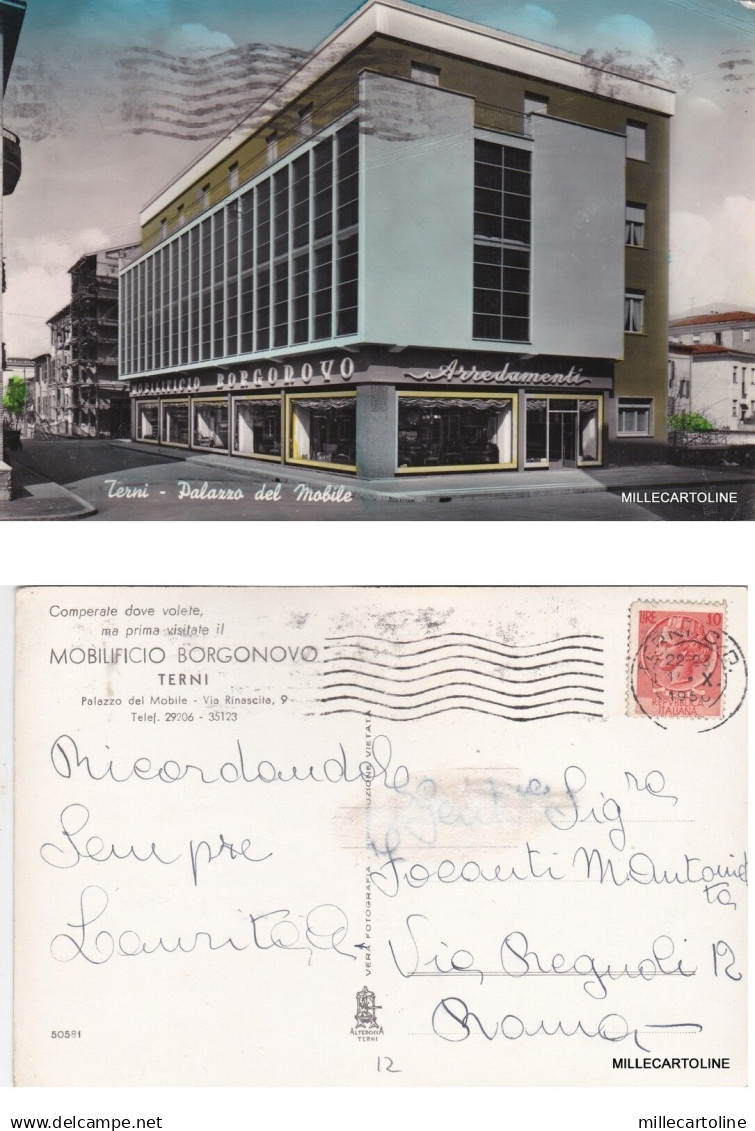 MOBILIFICIO BORGONOVO
Arredamenti
Terni - Palazzo del Mobile
MILLECARTOLINE
Comperate dove volete,
ma prima visitate il
MOBILIFICIO BORGONOVO
TERNI
Palazzo del Mobile - Via Rinascita, 9
Telef. 29206 - 35123
LIRE 10
REPVBBLICA
ITALIANA
22
X
Ricordandola
Sempre
Laurita
VERA FOTOGRAFIA RIPRODUZIONE VIETATA
Gent Sig ra
Focanti M Antoniet
ta
Via Regnoli 12
Roma
50581
ALTEROCCA
TERNI
12
MILLECARTOLINE
delcampe.net
millecartoline